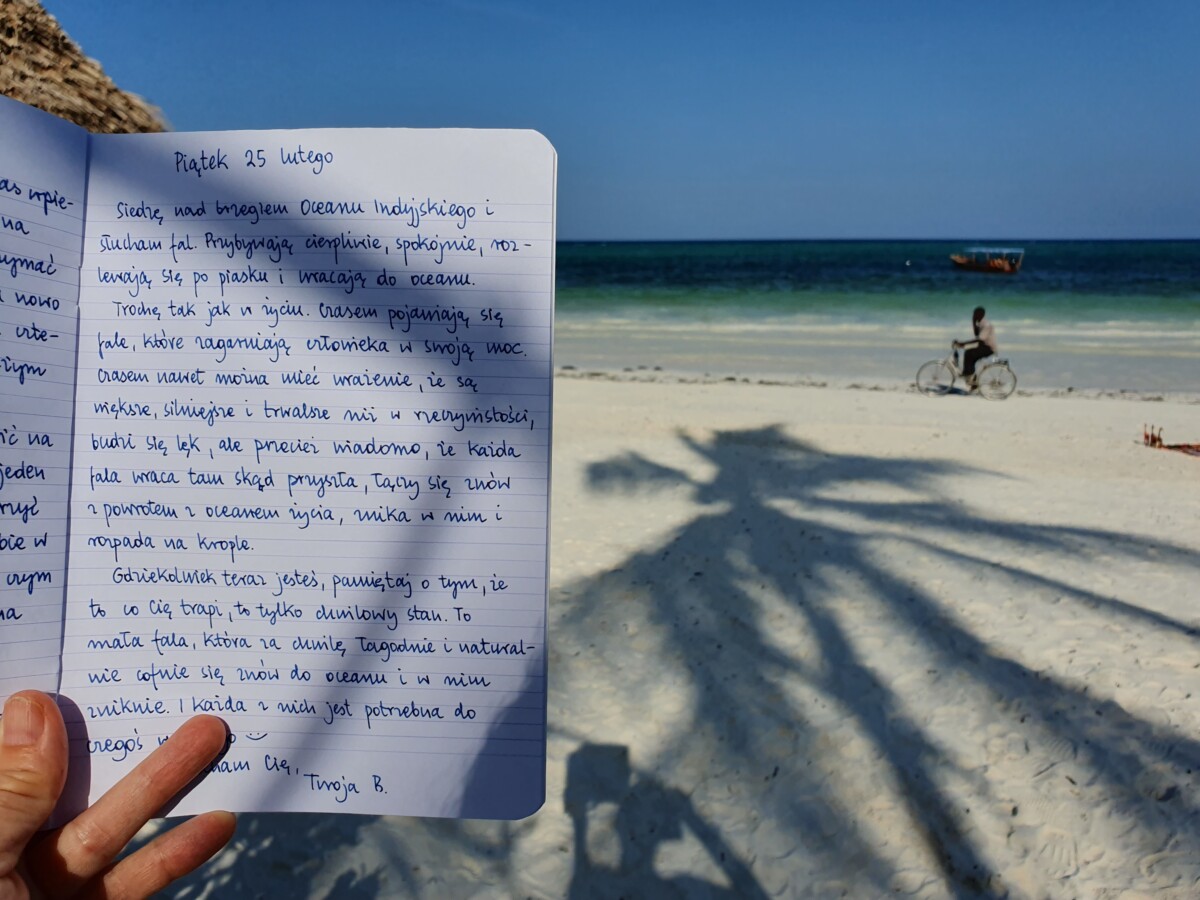 as wpie-
na
ymać
nowo
czte-
łym
ić na
jeden
rzyć
bie w
czym
na
Piątek 25 lutego
Siedzę nad brzegiem Oceanu Indyjskiego i
słucham fal. Przybywają cierpliwie, spokojnie, roz-
lewają się po piasku i wracają do oceanu.
Trochę tak jak w życiu. Czasem pojawiają się
fale, które zagarniają człowieka w swoją moc.
Czasem nawet można mieć wrażenie, że są
większe, silniejsze i trwalsze niż w rzeczywistości,
budzi się lęk, ale przecież wiadomo, że każda
fala wraca tam skąd przyszła, łączy się znów
z powrotem z oceanem życia, znika w nim i
rozpada na krople.
Gdziekolwiek teraz jesteś, pamiętaj o tym, że
to co Cię trapi, to tylko chwilowy stan. To
mała fala, która za chwilę łagodnie i natural-
nie cofnie się znów do oceanu i w nim
zniknie. I każda z nich jest potrzebna do
czegoś
cham Cię,
Twoja B.